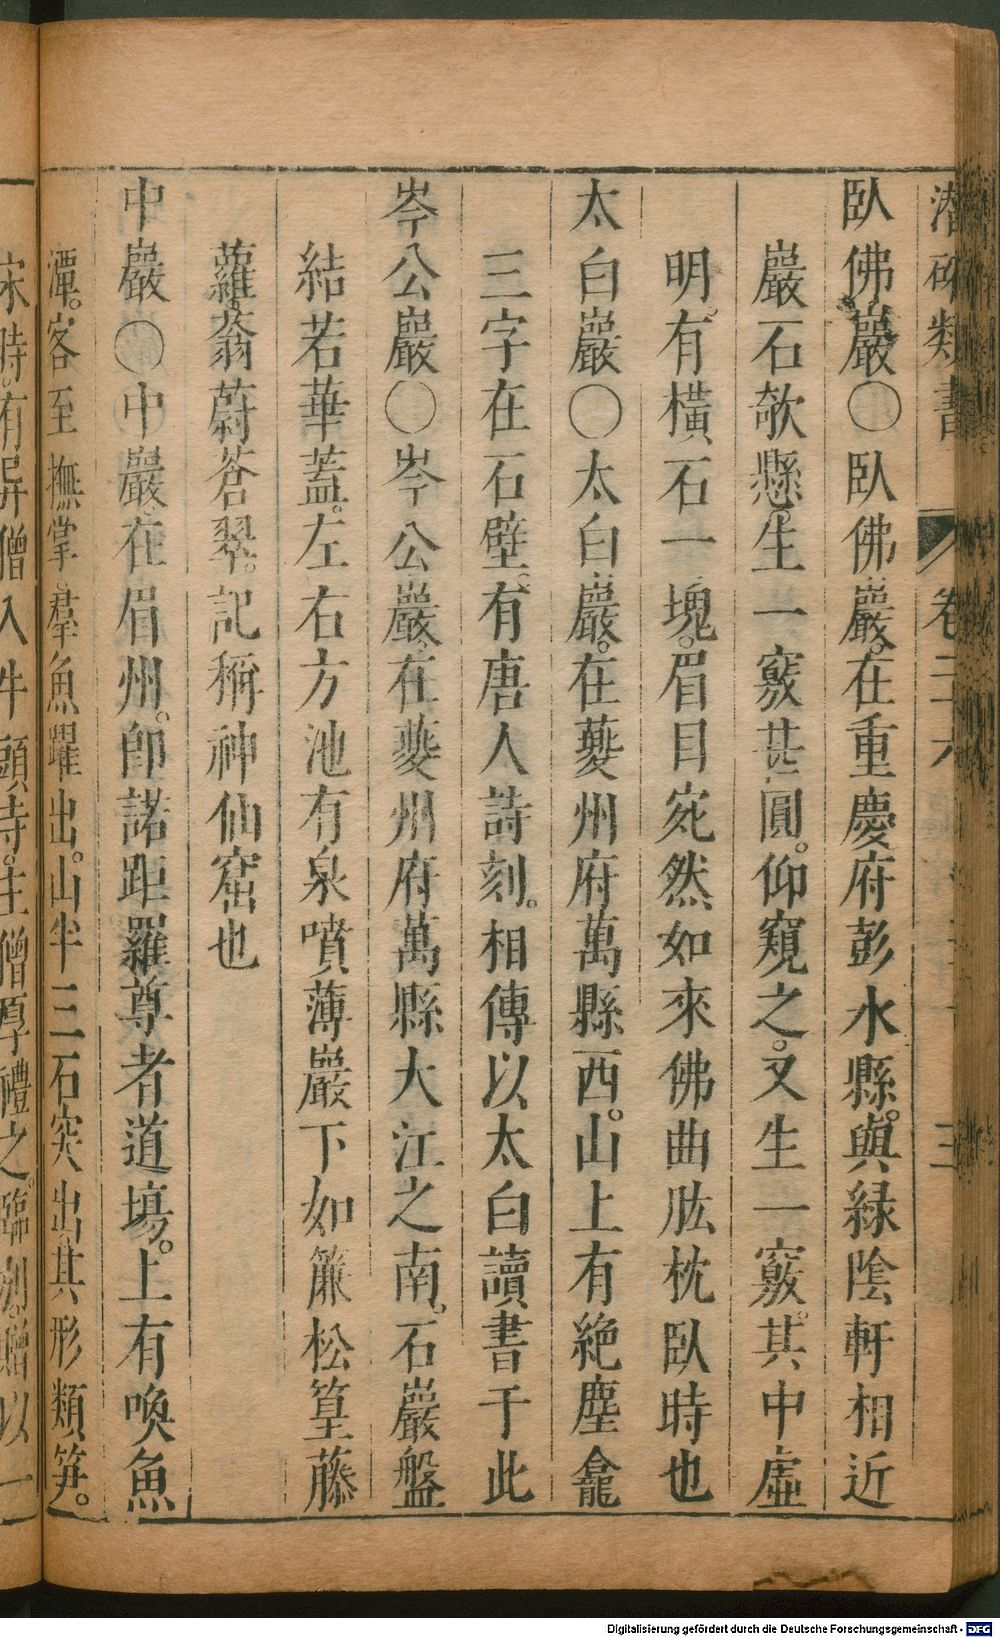 潛確類書 卷三六 三
臥佛巖〇臥佛巖。在重慶府彭水縣。與綠陰軒相近
巖石欹懸。生一竅甚圓。仰窺之。又生一竅。其中虛
明。有橫石一塊。眉目宛然如來佛曲肱枕臥時也
太白巖〇太白巖。在夔州府萬縣西。山上有絶塵龕
三字在石壁。有唐人詩刻。相傳以太白讀書于此
岑公巖〇岑公巖。在夔州府萬縣大江之南。石巖盤
結若華蓋。左右方池有泉噴薄巖下如簾松篁藤
蘿。蓊蔚蒼翠。記稱神仙窟也
中巖〇中巖在眉州。卽諾距羅尊者道場。上有喚魚
潭。客至撫掌羣魚躍出。山半三石突出。其形類笋。
宋時。有异僧入牛頭寺。主僧厚禮之。臨別。贈以一
Digitalisierung gefördert durch die Deutsche Forschungsgemeinschaft - DFG